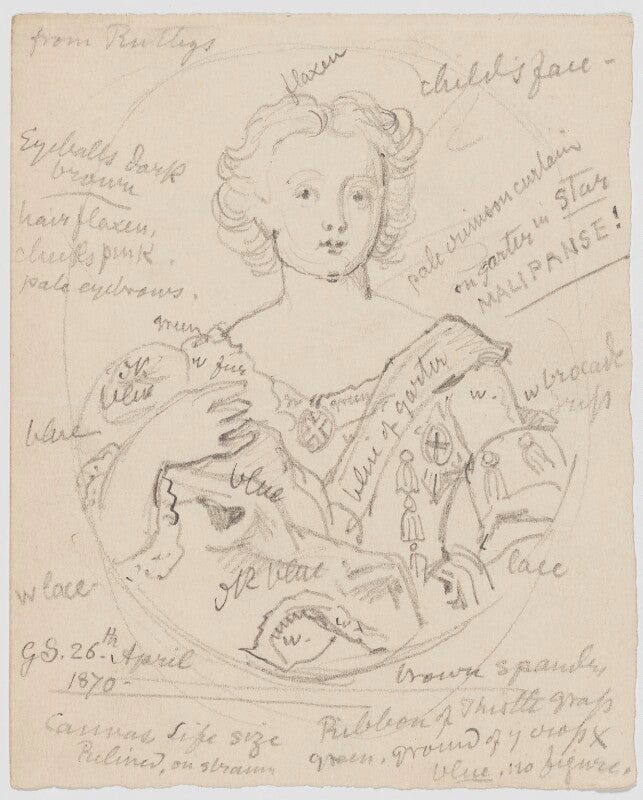 from Ruttleys
flaxen
child's face -
Eyeballs dark
brown
hair flaxen,
cheeks pink.
pale eyebrows.
pale crimson curtain
on garter in Star
MALIPANSE!
green
w fur
DK
blue
green
blue of garter
w.
w brocade
blue
blue
DK blue
lace
w lace
w.
w.
GS. 26.th April
1870-
brown spandr
Canvas Life size
Relined, on
Ribbon of Thistle grass
green. ground of y cross X
blue. no figure.